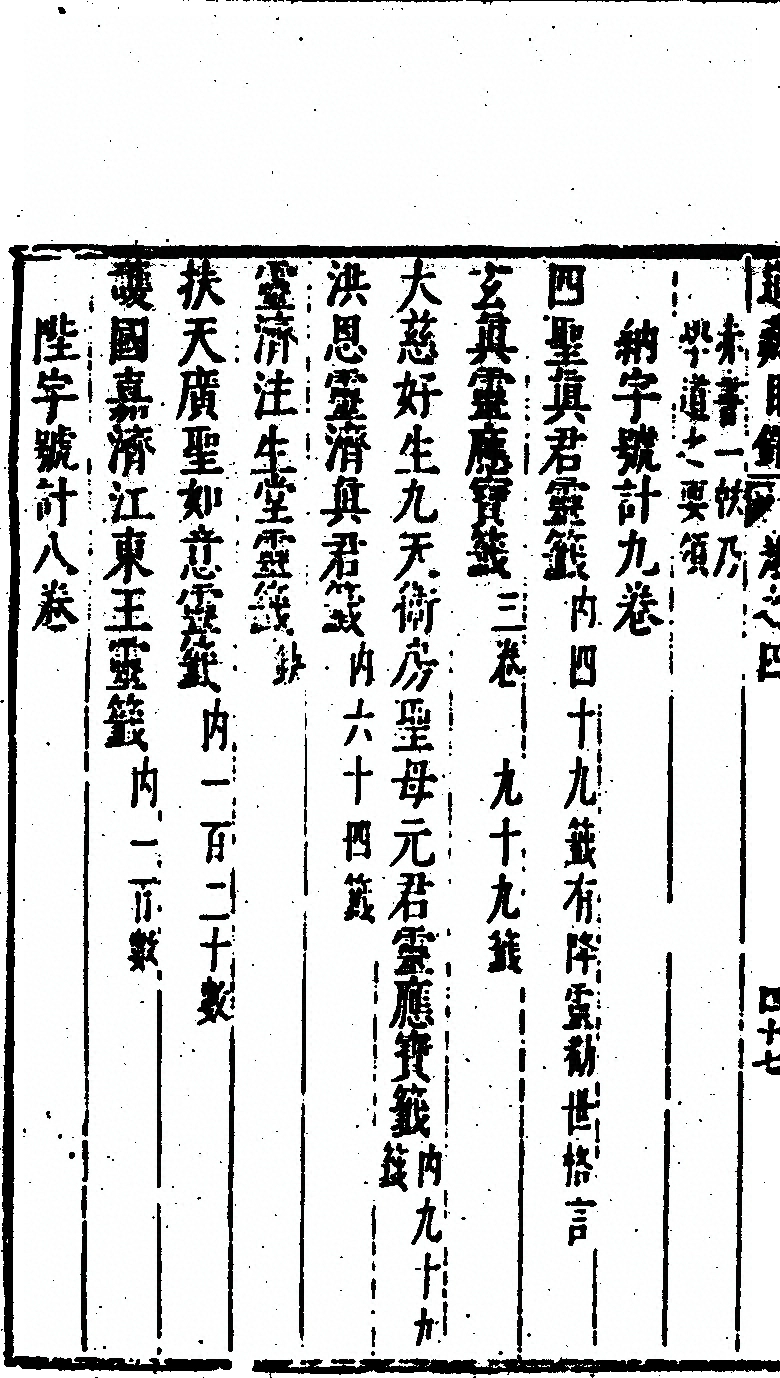 道藏目錄 卷之四 四十七
未書一帙乃
學道之要領
納字號計九卷
四聖真君靈籤 内四十九籤有降靈勸世格言
玄真靈應寶籤 三卷 九十九籤
大慈好生九天衛房聖母元君靈應寶籤 内九十九
籤
洪恩靈濟真君籤 内六十四籤
靈濟注生堂靈籤 缺
扶天廣聖如意靈籤 内一百二十數
護國嘉濟江東王靈籤 内一百數
陛字號計八卷